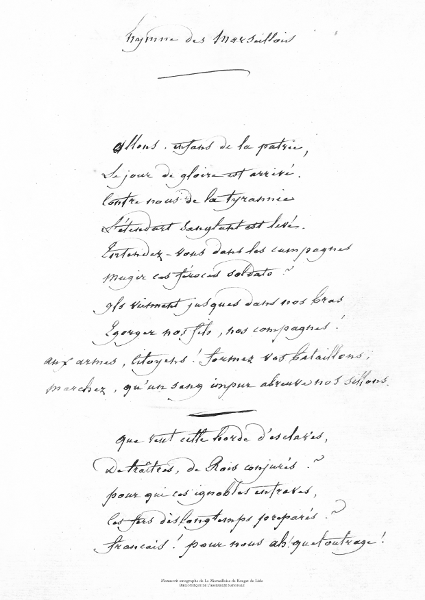 hymne des Marseillois
allons . enfans de la patrie,
Le jour de gloire est arrivé.
Contre nous de la tyrannie
L'étendart sanglant est levé.
Entendez-vous dans les campagnes
mugir ces féroces soldats ?
ils viennent jusques dans nos bras
Egorger nos fils, nos compagnes !
aux armes, citoyens. formez vos bataillons ;
marchez, qu'un sang impur abreuve nos sillons.
que veut cette horde d'esclaves,
De traîtres, de Rois conjurés ?
pour qui ces ignobles entraves,
ces fers dès longtemps préparés ?
français ! pour nous ah ! quel outrage !
Manuscrit autographe de La Marseillaise de Rouget de Lisle